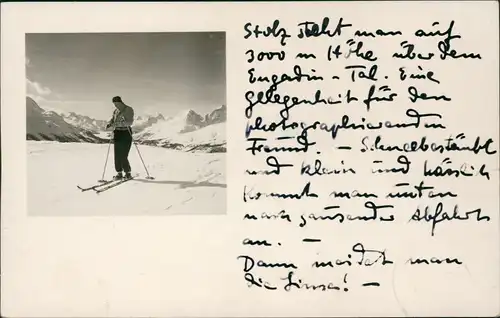 Stolz steht man auf
3000 m Höhe über dem
Engadin - Tal. Eine
Gelegenheit für den
photographierenden
Freund. - Schneebestäubt
und klein und hässlich
kommt man unten
nach sausender Abfahrt
an. -
Dann meidet man
die Linse! -